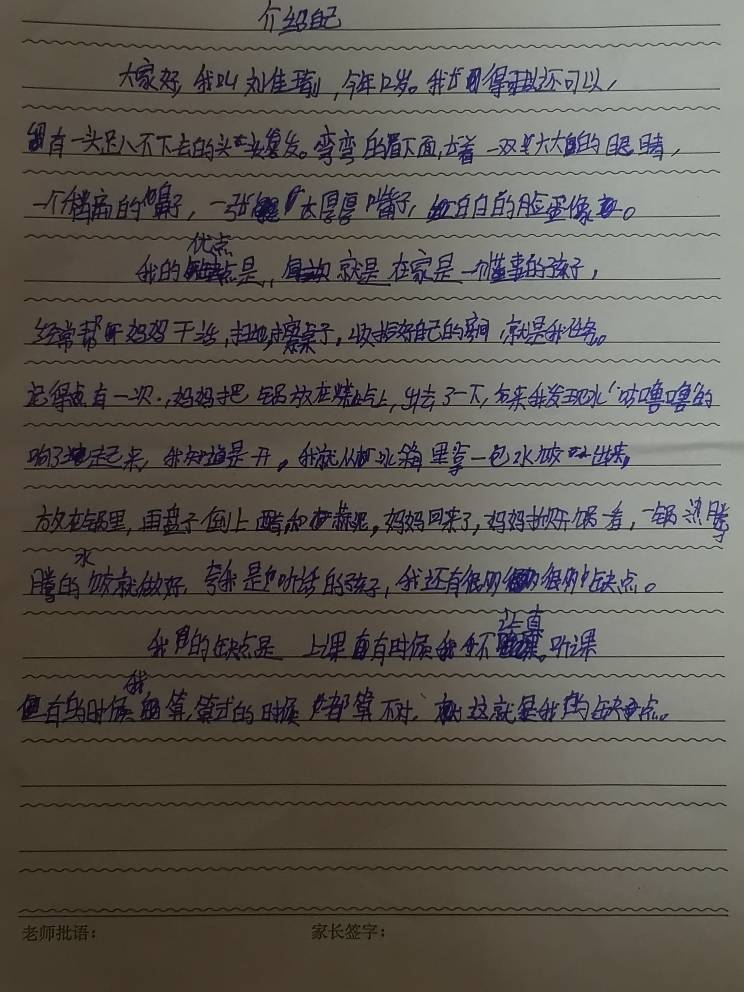 介绍自己
大家好,我叫刘佳,今年12岁。我长得还可以,
有一头足八不下去的头发。弯弯的眉下面,长着一双大大的眼睛,
一个稍高的鼻子,一张大厚厚嘴子,白白的脸蛋像。
优点
我的是,就是在家是一个懂事的孩子,
经常帮妈妈干活,扫地,擦桌子,收拾好自己的房间,就是我任务。
记得有一次,妈妈把锅放在燃气上,出去了一下,后来我发现水“咕噜噜”的
响了起来,我知道是开。我就从冰箱里拿一包水饺出来,
放在锅里,再盘子倒上醋和蒜泥,妈妈回来了,妈妈打开锅看,一锅热腾
水
腾的饺就做好,夸我是听话的孩子,我还有很的缺点。
认真
我的缺点是 上课有时候我不听课
我
有的时候算,算式的时候都算不对,这就是我的缺点。
老师批语:
家长签字: